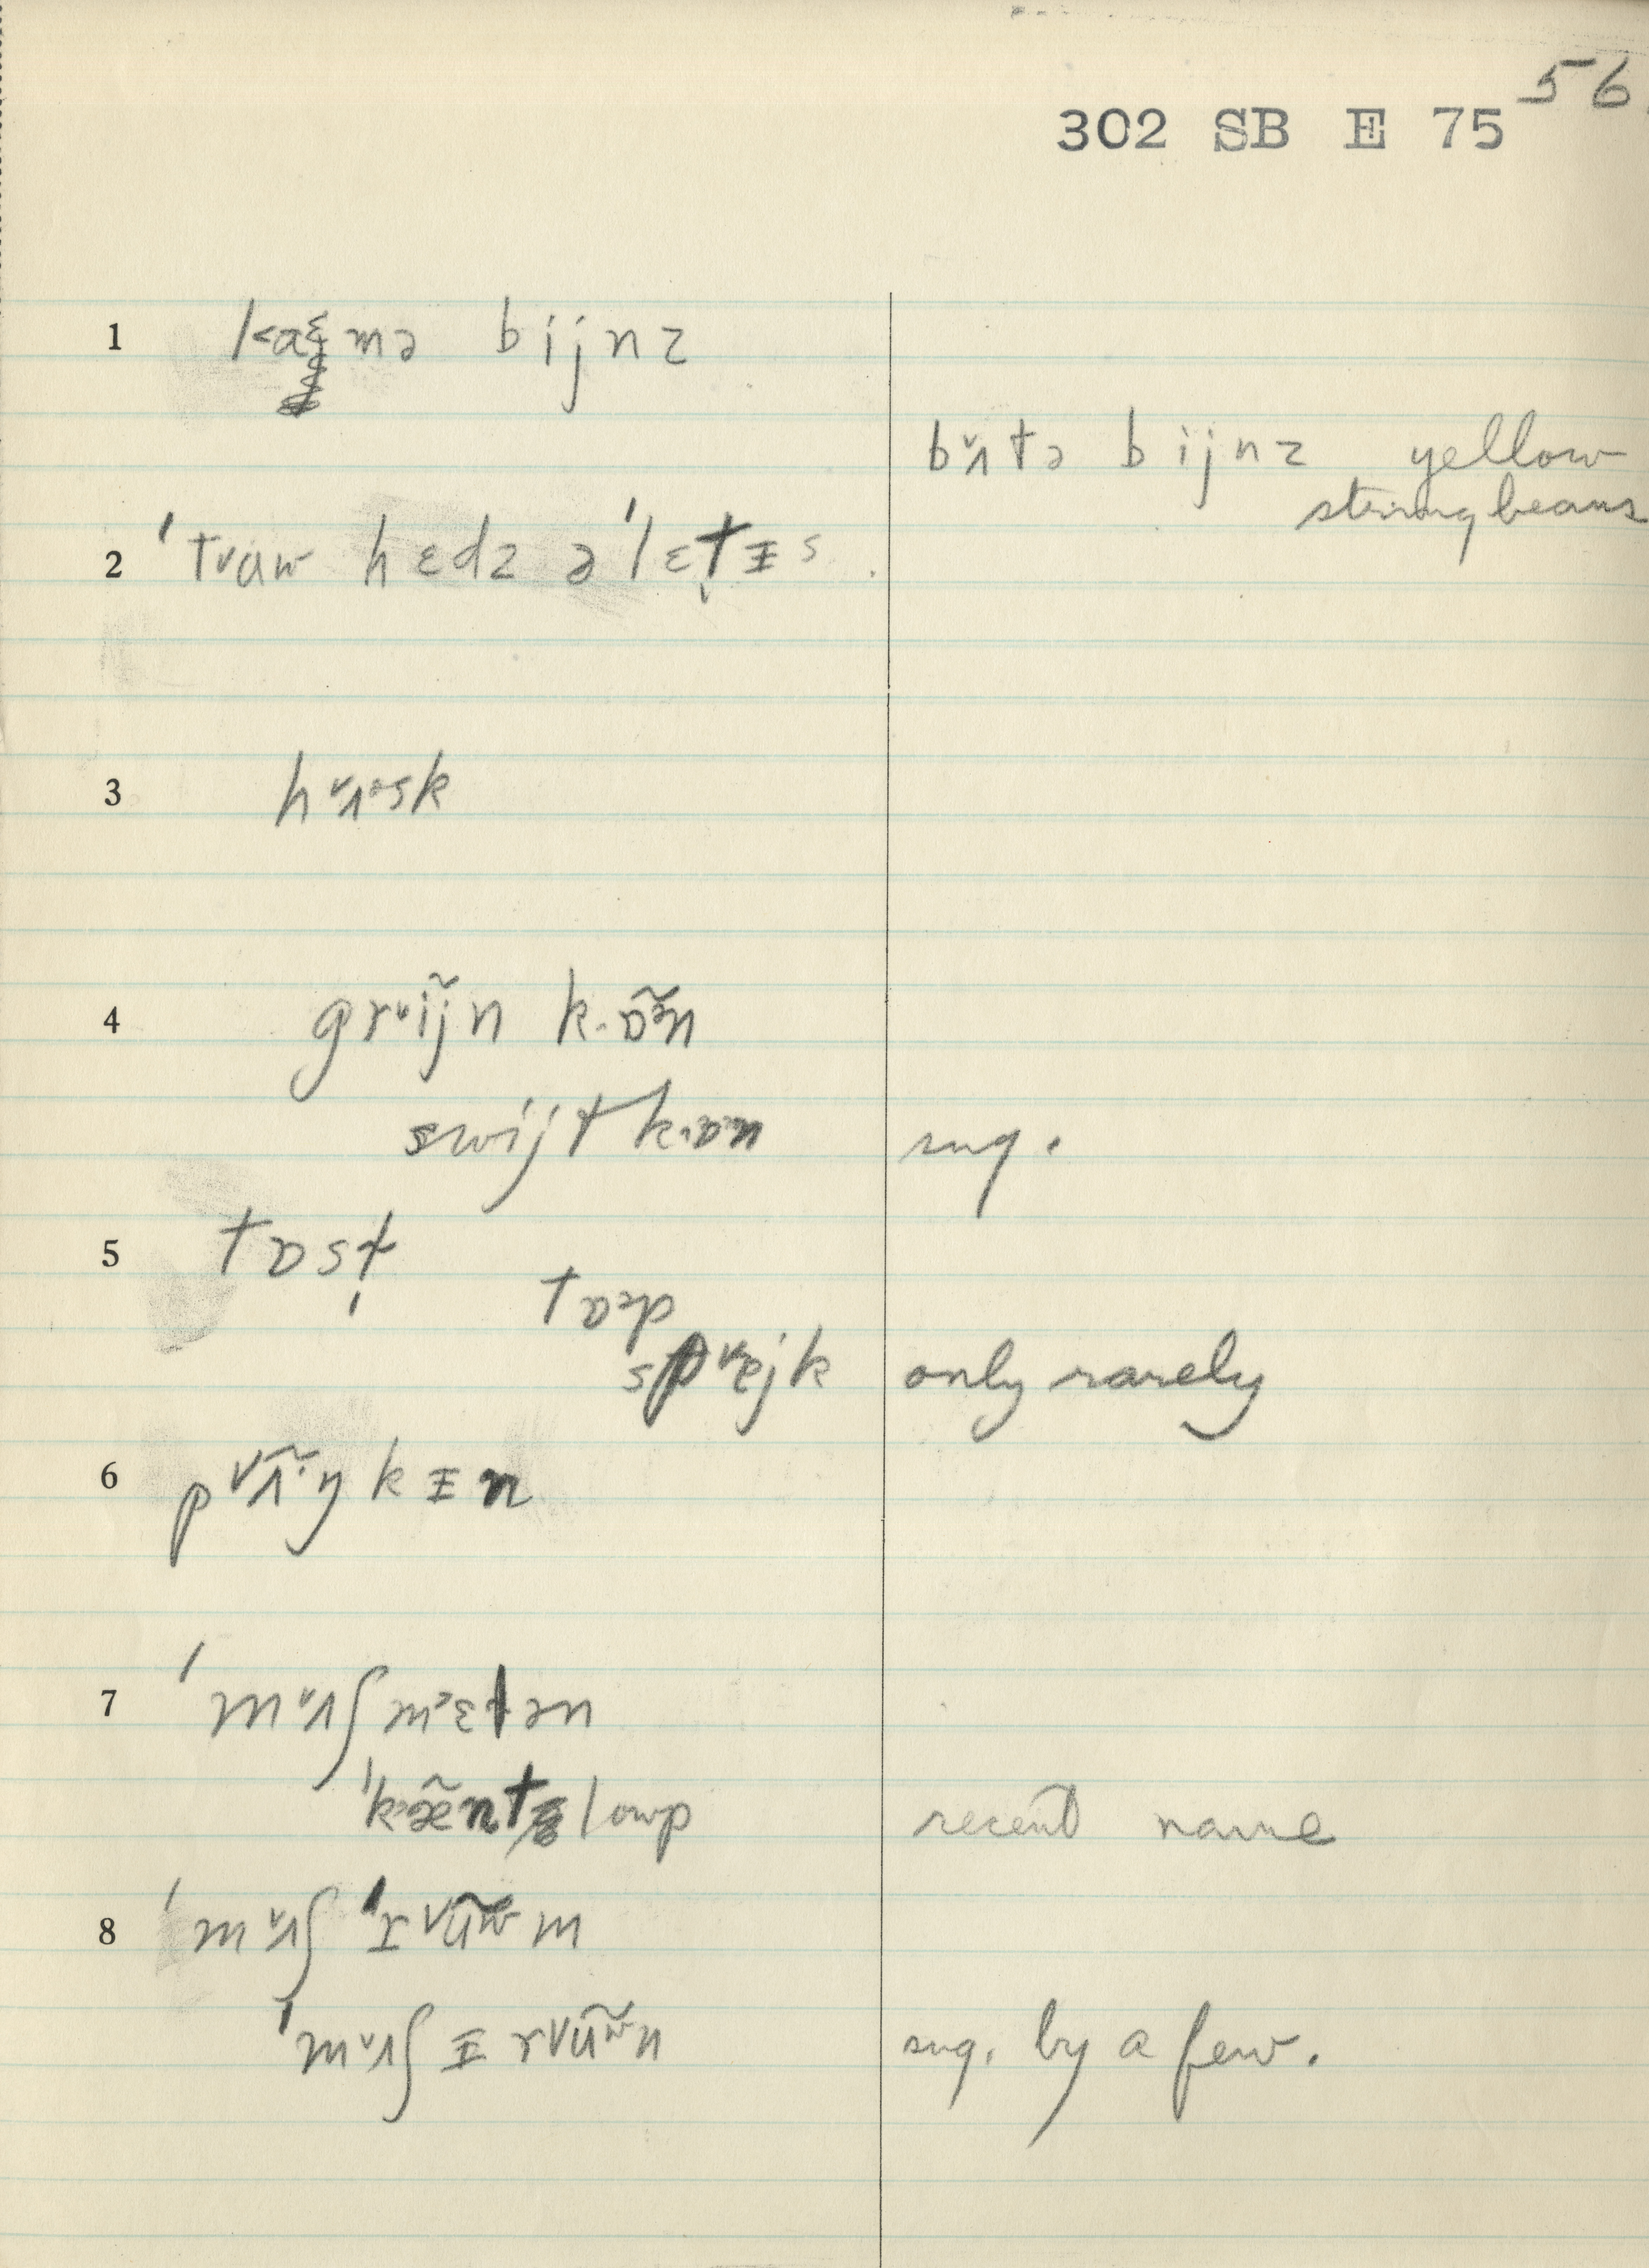 56
302 SB E 75
1 kaɛmə bijnz
bᵛʌtə bijnz yellow
stringbeans
2 ˈtᵛʉw hɛdz əˈlɛt̬ɪ̵s
3 hᵛʌᵊsk
4 grᵛĩj̃n k·ɒ̃ᵊ̃n
swijt k·ɒᵊn sug.
5 tɒst̬
tɒᵊp
spᵛejk only rarely
6 pᵛʌ̃·ŋkɪ̵n
7 ˈmᵛʌʃmᵊɛlən
ˈkᵊæ̃ntlowp recent name
8 ˈmᵛʌʃˈrᵛʉ̃w̃m
ˈmᵛʌʃɪ̵rᵛʉ̃w̃n sug. by a few.